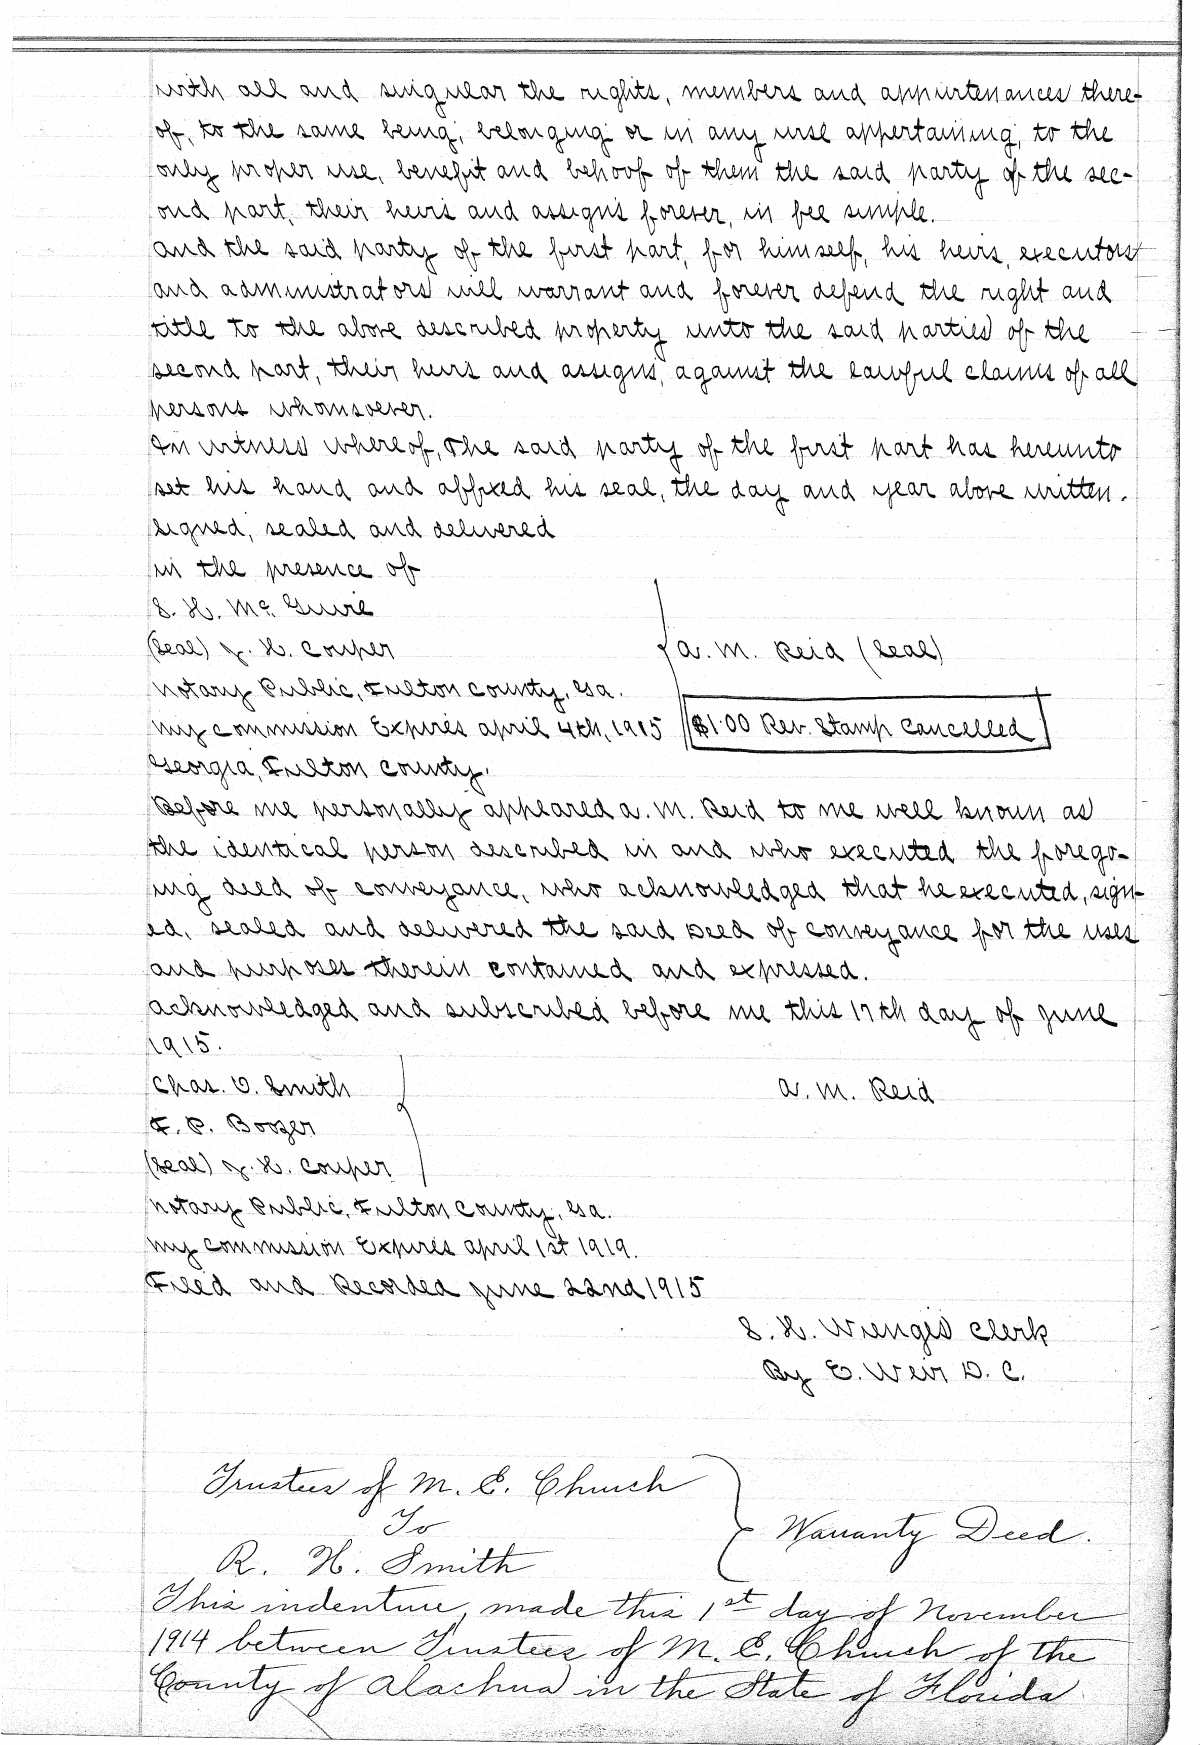 with all and singular the rights, members and appurtenances there-
of, to the same being, belonging or in any wise appertaining, to the
only proper use, benefit and behoof of them the said party of the sec-
ond part, their heirs and assigns forever, in fee simple.
and the said party of the first part, for himself, his heirs, executors
and administrators will warrant and forever defend the right and
title to the above described property unto the said parties of the
second part, their heirs and assigns, against the lawful claims of all
persons whomsoever.
In witness whereof, The said party of the first part has hereunto
set his hand and affixed his seal, the day and year above written.
Signed, sealed and delivered
in the presence of
S. H. McGuire
(Seal) J. H. Couper } A. M. Reid (Seal)
Notary Public, Fulton County, Ga.
My commission Expires April 4th, 1915 $1.00 Rev. Stamp Cancelled
Georgia, Fulton County.
Before me personally appeared A. M. Reid to me well known as
the identical person described in and who executed the forego-
ing deed of conveyance, who acknowledged that he executed, sign-
ed, sealed and delivered the said Deed of conveyance for the uses
and purposes therein contained and expressed.
Acknowledged and subscribed before me this 17th day of June
1915.
Chas. D. Smith A. M. Reid
F. P. Boozer
(Seal) J. H. Couper
Notary Public, Fulton County, Ga.
My commission Expires April 1st 1919.
Filed and Recorded June 22nd 1915
S. H. Wienges Clerk
By E. Weir D. C.
Trustees of M. E. Church
To } Warranty Deed.
R. H. Smith
This indenture, made this 1st day of November
1914 between Trustees of M. E. Church of the
County of Alachua in the State of Florida